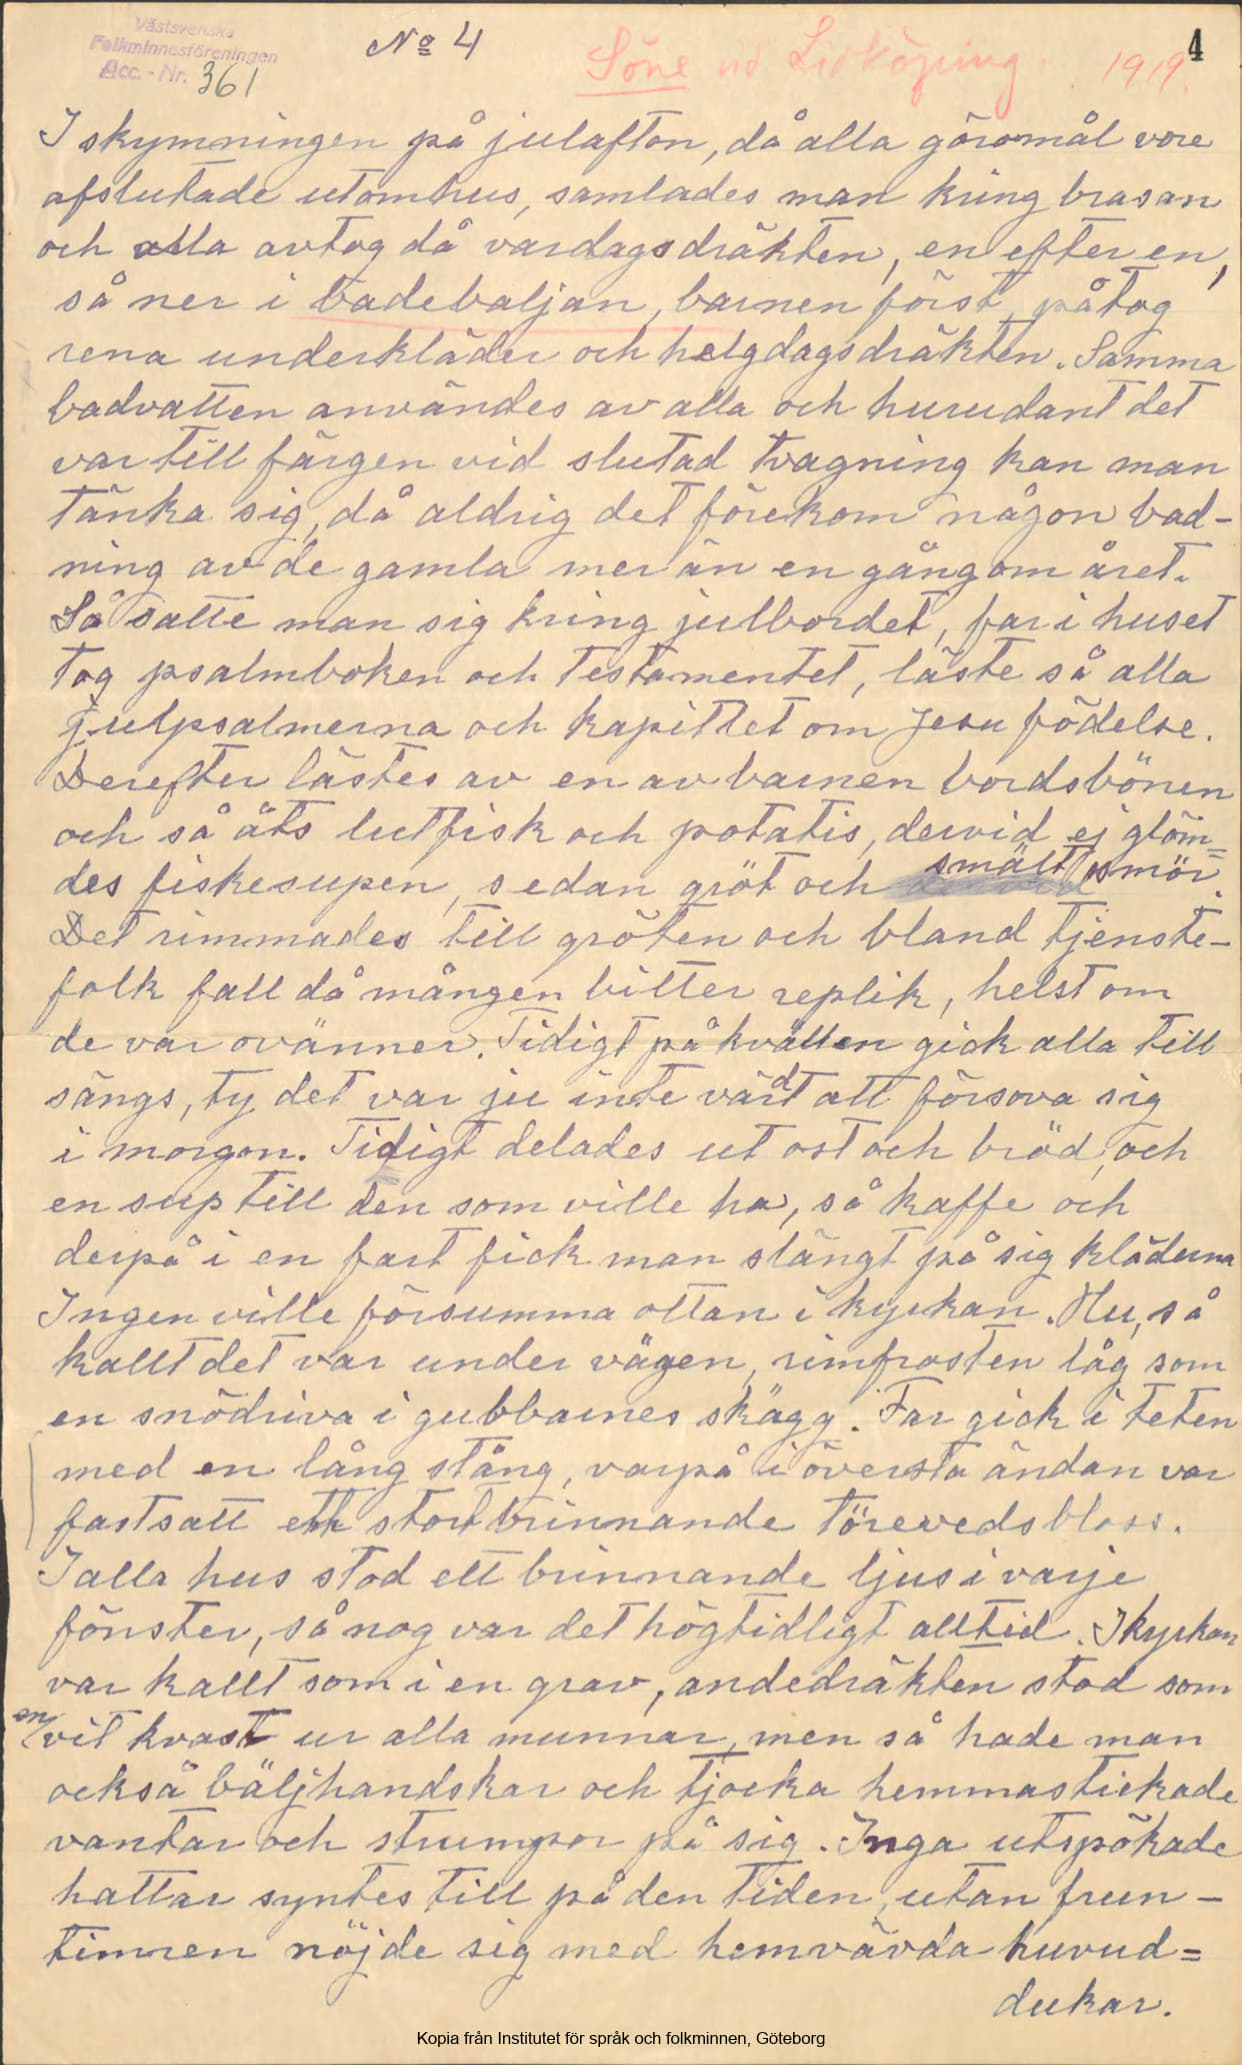 Västsvenska
Folkminnesföreningen
Acc.-Nr. 361
No 4
Söne vid Lidköping. 1919.
4
I skymningen på julafton, då alla göromål vore
afslutade utomhus, samlades man kring brasan
och alla avtog då vardagsdräkten, en efter en,
så ner i badebaljan, barnen först, påtog
rena underkläder och helgdagsdräkten. Samma
badvatten användes av alla och hurudant det
var till färgen vid slutad tvagning kan man
tänka sig, då aldrig det förekom någon bad-
ning av de gamla mer än en gång om året.
Så satte man sig kring julbordet, far i huset
tog psalmboken och testamentet, läste så alla
julpsalmerna och kapitlet om Jesu födelse.
Derefter lästes av en av barnen bordsbönen
och så äts lutfisk och potatis, dervid ej glöm=
des fiskesupen, sedan gröt och smält smör.
Det rimmades till gröten och bland tjenste-
folk fall då mången bitter replik, helst om
de var ovänner. Tidigt på kvällen gick alla till
sängs, ty det var ju inte värdt att försova sig
i morgon. Tidigt delades ut ost och bröd, och
en sup till den som ville ha, så kaffe och
derpå i en fart fick man slängt på sig kläderna
Ingen ville försumma ottan i kyrkan. Hu, så
kallt det var under vägen, rimfrosten låg som
en snödriva i gubbarnes skägg. Far gick i teten
med en lång stång, varpå i översta ändan var
fastsatt ett stort brinnande törevedsbloss.
I alla hus stod ett brinnande ljus i varje
fönster, så nog var det högtidligt alltid. I kyrkan
var kallt som i en grav, andedräkten stod som
en vit kvast ur alla munnar, men så hade man
också bäljhandskar och tjocka hemmastickade
vantar och strumpor på sig. Inga utspökade
hattar syntes till på den tiden, utan frun-
timren nöjde sig med hemvävda huvud=
dukar.
Kopia från Institutet för språk och folkminnen, Göteborg